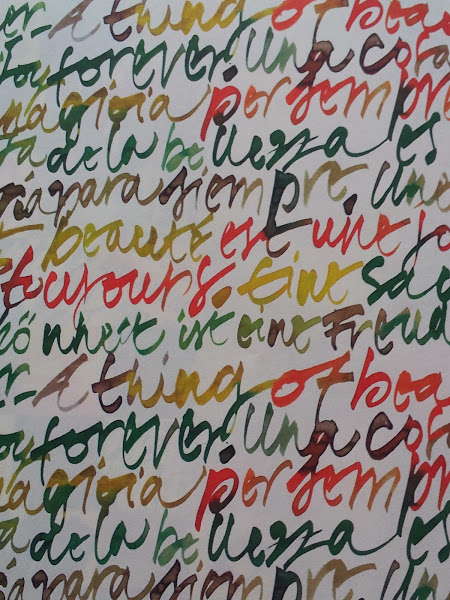 er- A thing of beau
joy forever. Una cosa
na gioia per sempre
ta de la belleza es
ria para siempre. Une
t beauté est une jo
toujours. Eine Sac
hönheit ist eine Freud
er- A thing of beau
joy forever. Una cosa
na gioia per sempre
ta de la belleza es
ria para siempre. Une